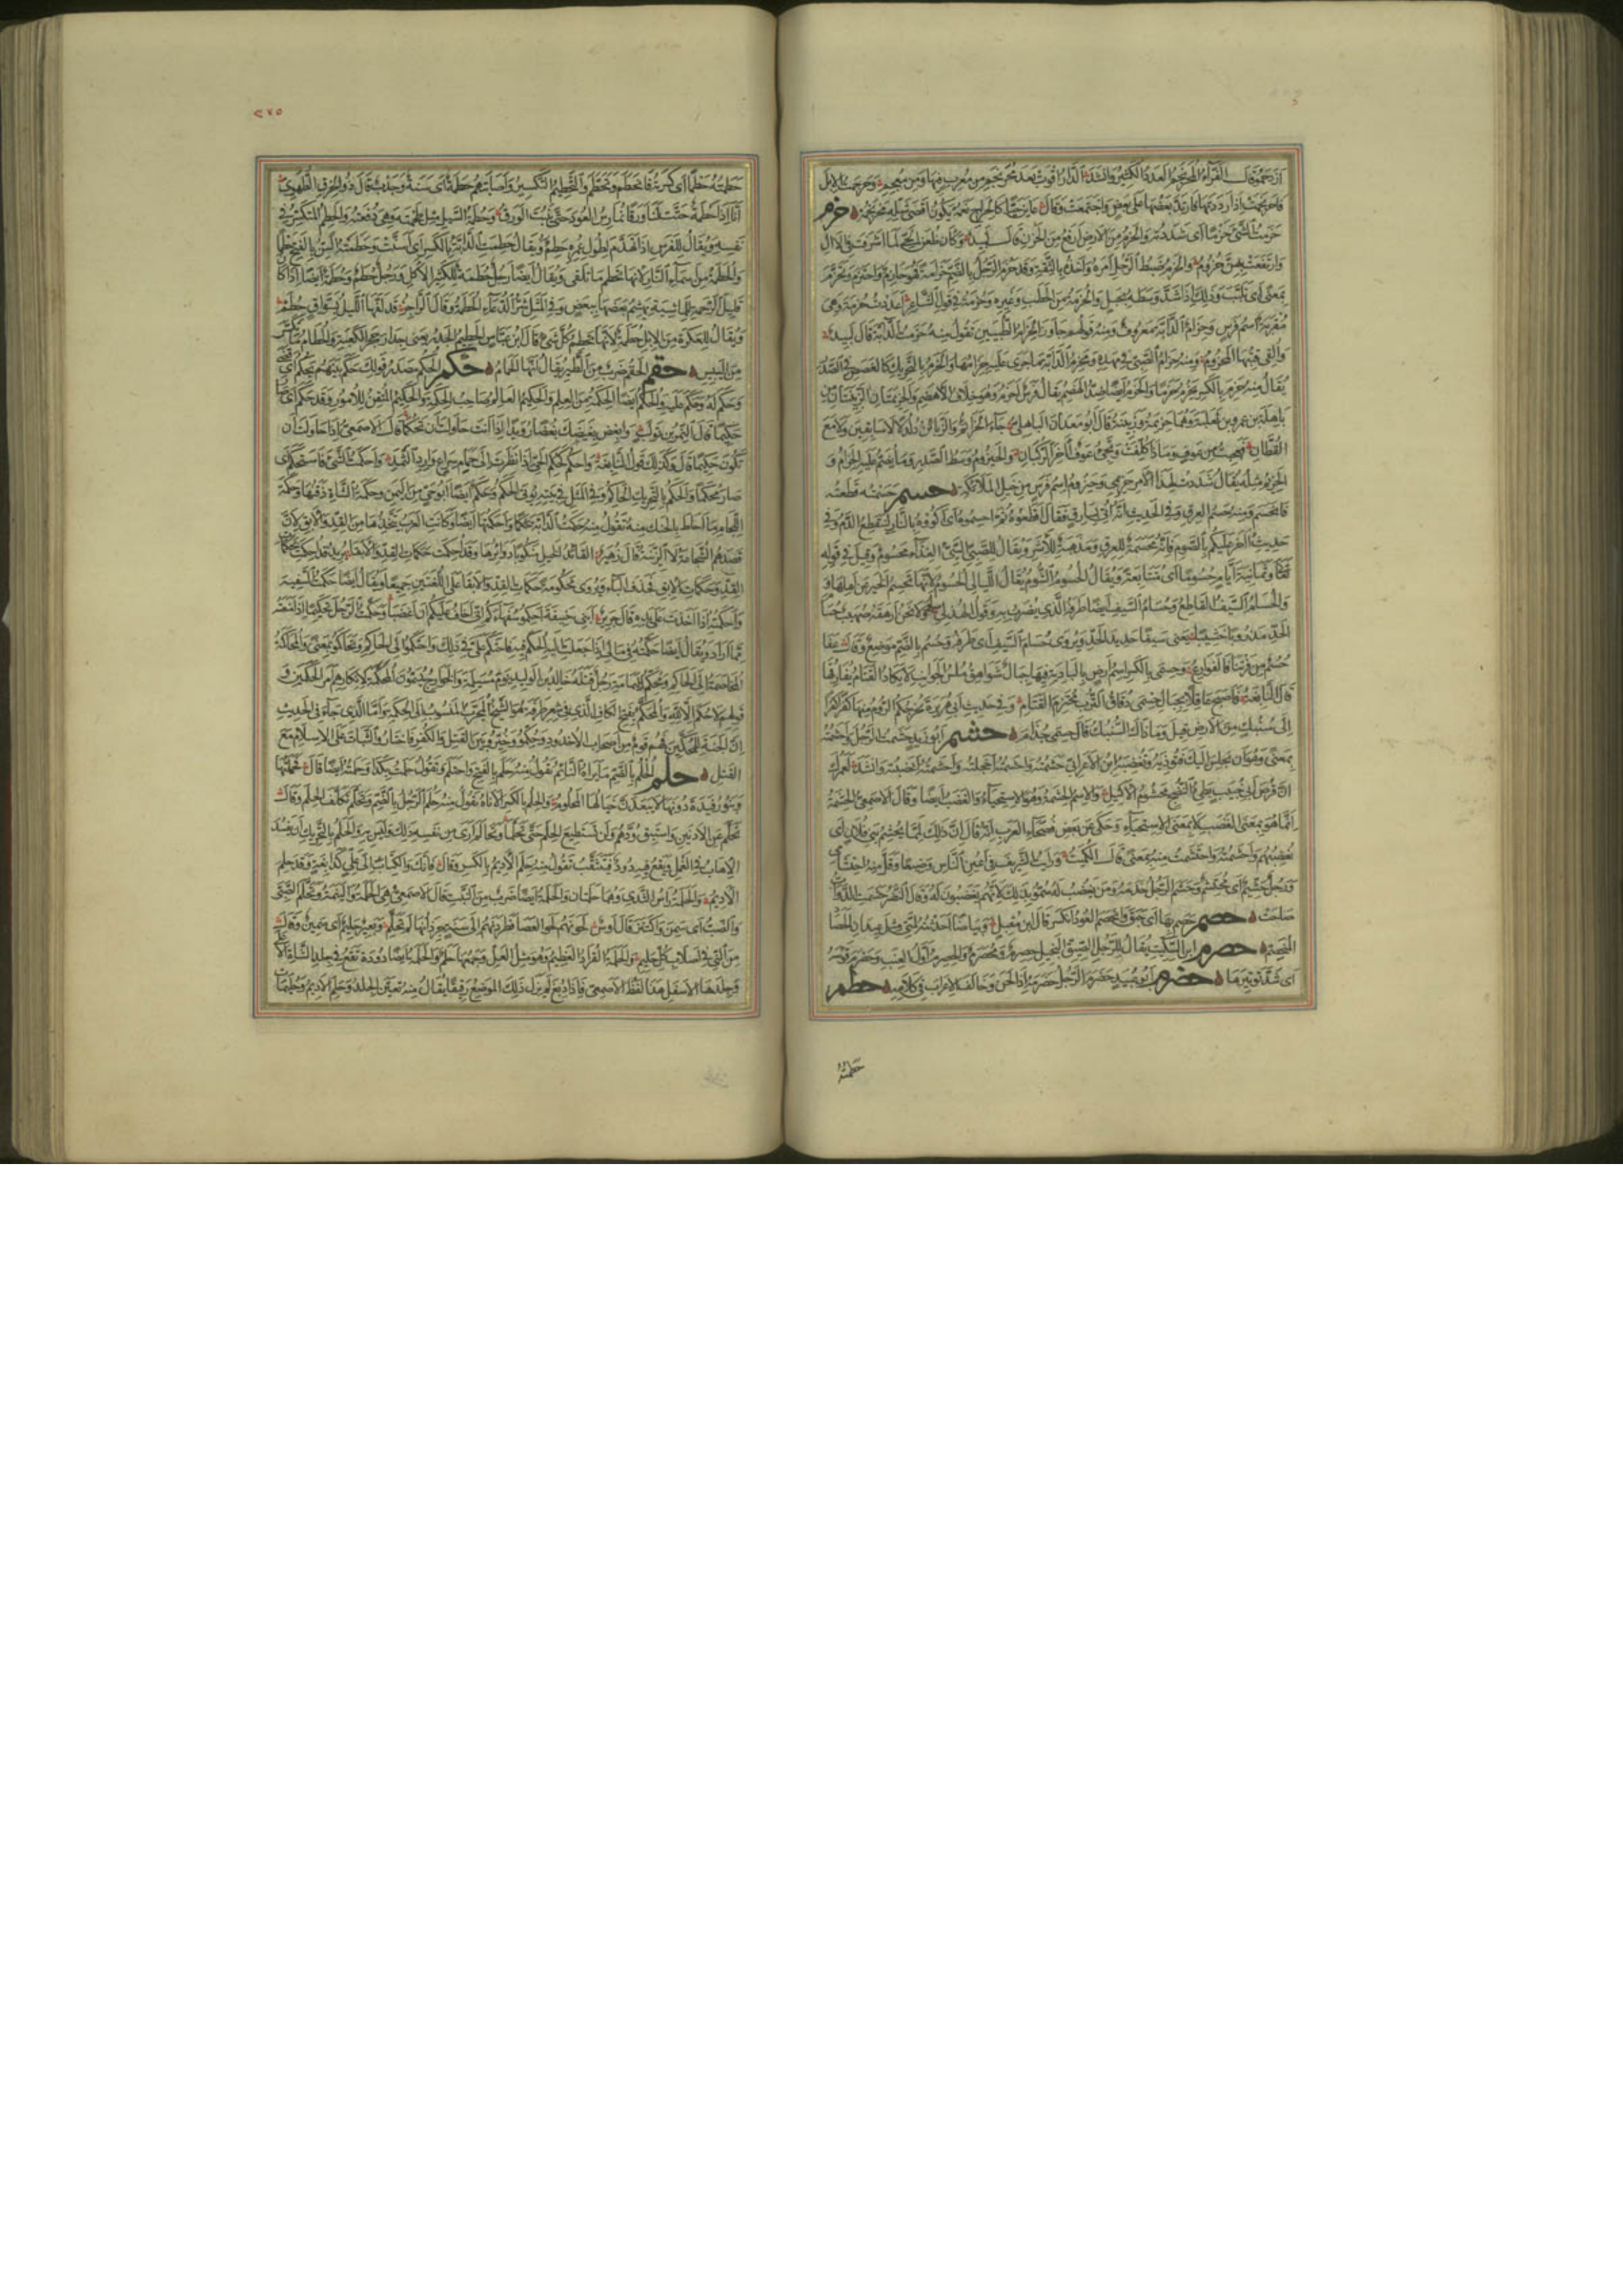 ازدحموا قال الفراء المحرنجم العدد الكثير وانشد الدار اقوت بعد محرنجم من معرب فيها ومن معجم وحرجمت الابل
فاحرنجمت اذا رددتها فارتد بعضها على بعض واجتمعت وقال يكون اقصى شله محرنجمه حزم
حزمت الشئ حزما اى شددته والحزم من الارض ارفع من الحزن قال لبيد وكان ظعن الحى لما اشرفت فى الآل
وارتفعت بهن حزوم والحزم ضبط الرجل امره واخذه بالثقة وقد حزم الرجل بالضم حزامة فهو حازم واحتزم وتحزم
بمعنى اى تلبب وذلك اذا شد وسطه بحبل والحزمة من الحطب وغيره وحزمة فى قول الشاعر اعددت حزمة وهى
مقربة اسم فرس وحزام الدابة معروف ومنه قولهم جاوز الحزام الطبيين تقول منه حزمت الدابة قال لبيد
والقى قتبها المحزوم ومنه حزام الصبى فى مهده ومحزم الدابة ما جرى عليه حزامها والحزم بالتحريك كالغصص فى الصدر
يقال منه حزم بالكسر يحزم حزما والحزم ايضا ضد الهضم يقال فرس احزم وهو خلاف الاهضم والحزيمتان والزبينتان من
باهلة بن عمرو بن ثعلبة وهما حزيمة وزبينة قال ابو معدان الباهلى جاء الحزائم والزبائن دلدلا لا سابقين ولا مع
القطان فعجبت من عوف وماذا كلفت وتجئ عوف آخر الركبان والحيزوم وسط الصدر وما يضم عليه الحزام و
الحزيم مثله يقال شددت لهذا الامر حزيمى وحيزوم اسم فرس من خيل الملائكة حسم حسمته قطعته
فانحسم ومنه حسم العرق وفى الحديث انه اتى بسارق فقال اقطعوه ثم احسموه اى اكووه بالنار لينقطع الدم وفى
حديث آخر عليكم بالصوم فانه محسمة للعرق ومذهبة للاشر ويقال للصبى السيئ الغذاء محسوم وقيل فى قوله
تعالى وثمانية ايام حسوما اى متتابعة ويقال الحسوم الشوم يقال الليالى الحسوم لانها تحسم الخير عن اهلها
والحسام السيف القاطع وحسام السيف ايضا طرفه الذى يضرب به وقول الهذلى
الحد يعنى سيفا حديد الحد ويروى حسام السيف اى طرفه وحسم بالضم موضع وقال عفا
حسم من فرتنا فالفوارع وحسمى بالكسر اسم ارض بالبادية فيها جبال شواهق ملس الجوانب لا يكاد القتام يفارقها
قال النابغة فاصبح عاقلا بجبال حسمى دقاق الترب محتزم القتام وفى حديث ابى هريرة لتخرجنكم الروم منها كفرا كفرا
الى سنبك من الارض قيل وما ذاك السنبك قال حسمى جذام حشم ابو زيد حشمت الرجل واحشمته
بمعنى وهو ان يجلس اليك فتؤذيه وتغضبه ابن الاعرابى حشمته اخجلته واحشمته اغضبته وانشد لعمرك
ان قرص ابى خبيب بطئ النضج محشوم الاكيل والاسم الحشمة وهو الاستحياء والغضب ايضا وقال الاصمعى الحشمة
انما هو بمعنى الغضب لا بمعنى الاستحياء وحكى عن بعض فصحاء العرب انه قال ان ذلك لمما يحشم بنى فلان اى
يغضبهم واحشمته واحتشمت منه بمعنى قال الكميت ورايت الشريف فى اعين الناس وضيعا وقل منه احتشامى
ورجل حشيم اى محتشم وحشم الرجل خدمه ومن يغضب له سموا بذلك لانهم يغضبون له وقال النضر حشمت الدواب
صلحت حصم حصم بها اى حبق وانحصم العود انكسر قال ابن مقبل وبياضا احدثته لمتى مثل عيدان الحصاد
المنحصم حصرم ابن السكيت يقال للرجل الضيق البخيل حصرم ومحصرم والحصرم اول العنب وحصرم قوسه
اى شد توتيرها حضرم ابو عبيد حضرم الرجل حضرمة اذا لحن وخالف الاعراب فى كلامه حطم
حطمته
٢٧٥
حطمته حطما اى كسرته فانحطم وتحطم والتحطيم التكسير واصابتهم حطمة اى سنة وجدب قال ذو الخرق الطهوى
انا اذا حطمة حتت لنا ورقا نمارس العود حتى ينبت الورق وحطمة السيل مثل طحمته وهى دفعته والحطم المتكسر فى
نفسه ويقال للفرس اذا تهدم لطول عمره حطم ويقال حطمت الدابة بالكسر اى اسنت وحطمته السن بالفتح حطما
والحطمة من اسماء النار لانها تحطم ما تلقى ويقال ايضا رجل حطمة للكثير الاكل ورجل حطم وحطمة ايضا اذا كان
قليل الرحمة للماشية يهشم بعضها ببعض وفى المثل شر الرعاء الحطمة وقال الراجز قد لفها الليل بسواق حطم
ويقال للعكرة من الابل حطمة لانها تحطم كل شئ قال ابن عباس الحطيم الجدر يعنى جدار حجر الكعبة والحطام ما تكسر
من اليبيس حقم الحقم ضرب من الطير يقال انها الحمام حكم الحكم مصدر قولك حكم بينهم يحكم اى قضى
وحكم له وحكم عليه والحكم ايضا الحكمة من العلم والحكيم العالم وصاحب الحكمة والحكيم المتقن للامور وقد حكم اى صار
حكيما قال النمر بن تولب وابغض بغيضك بغضا رويدا اذا انت حاولت ان تحكما قال الاصمعى اذا حاولت ان
تكون حكيما قال وكذلك قول النابغة واحكم كحكم فتاة الحى اذ نظرت الى حمام سراع وارد الثمد واحكمت الشئ فاستحكم اى
صار محكما والحكم بالتحريك الحاكم وفى المثل فى بيته يؤتى الحكم وحكم ايضا ابو حى من اليمن وحكمة الشاة ذقنها وحكمة
اللجام ما احاط بالحنك منه تقول منه حكمت الدابة حكما واحكمتها ايضا وكانت العرب تتخذها من القد والابق لان
قصدهم الشجاعة لا الزينة قال زهير القائد الخيل منكوبا دوابرها قد احكمت حكمات القد والابقا يريد قد احكمت بحكمات
القد وبحكمات الابق فحذف الباء ويروى محكومة حكمات القد والابقا على اللغتين جميعا ويقال ايضا حكمت السفيه
واحكمته اذا اخذت على يده قال جرير ابنى حنيفة احكموا سفهاءكم انى اخاف عليكم ان اغضبا وحكمت الرجل تحكيما اذا منعته
مما اراد ويقال ايضا حكمته فى مالى اذا جعلت اليه الحكم فيه فاحتكم على فى ذلك واحتكموا الى الحاكم وتحاكموا بمعنى والمحاكمة
المخاصمة الى الحاكم ومحكم اليمامة رجل قتله خالد بن الوليد يوم مسيلمة والخوارج يسمون المحكمة لانكارهم امر الحكمين و
قولهم لا حكم الا لله والمحكم بفتح الكاف الذى فى شعر طرفة هو الشيخ المجرب المنسوب الى الحكمة واما الذى جاء فى الحديث
ان الجنة للمحكمين فهم قوم من اصحاب الاخدود حكموا وخيروا بين القتل والكفر فاختاروا الثبات على الاسلام مع
القتل حلم الحلم بالضم ما يراه النائم تقول منه حلم بالفتح واحتلم وتقول حلمت بكذا وحلمته ايضا قال فحلمتها
وبنو رفيدة دونها لا يبعدن خيالها المحلوم والحلم بالكسر الاناة تقول منه حلم الرجل بالضم وتحلم تكلف الحلم وقال
تحلم عن الادنين واستبق ودهم ولن تستطيع الحلم حتى تحلما وتحالم ارى من نفسه ذلك وليس به والحلم بالتحريك ان يفسد
الاهاب فى العمل ويقع فيه دود فيتثقب تقول منه حلم الاديم بالكسر وقال فانك والكتاب الى على كدابغة وقد حلم
الاديم والحلمة راس الثدى وهما حلمتان والحلمة ايضا ضرب من النبت قال الاصمعى هى الحلمة والينمة وتحلم الصبى
والضب اى سمن واكتنز قال اوس لحونهم لحو العصا فطردنهم الى سنة جرذانها لم تحلم وبعير حليم اى سمين وقال
من النى فى اصلاب كل حليم والحلمة القراد العظيم وهو مثل العل وجمعها حلم والحلمة ايضا دودة تقع فى جلد الشاة الاعلى
وجلدها الاسفل هذا لفظ الاصمعى فاذا دبغ لم يزل ذلك الموضع رقيقا يقال منه تعين الجلد وحلم الاديم وحليمات